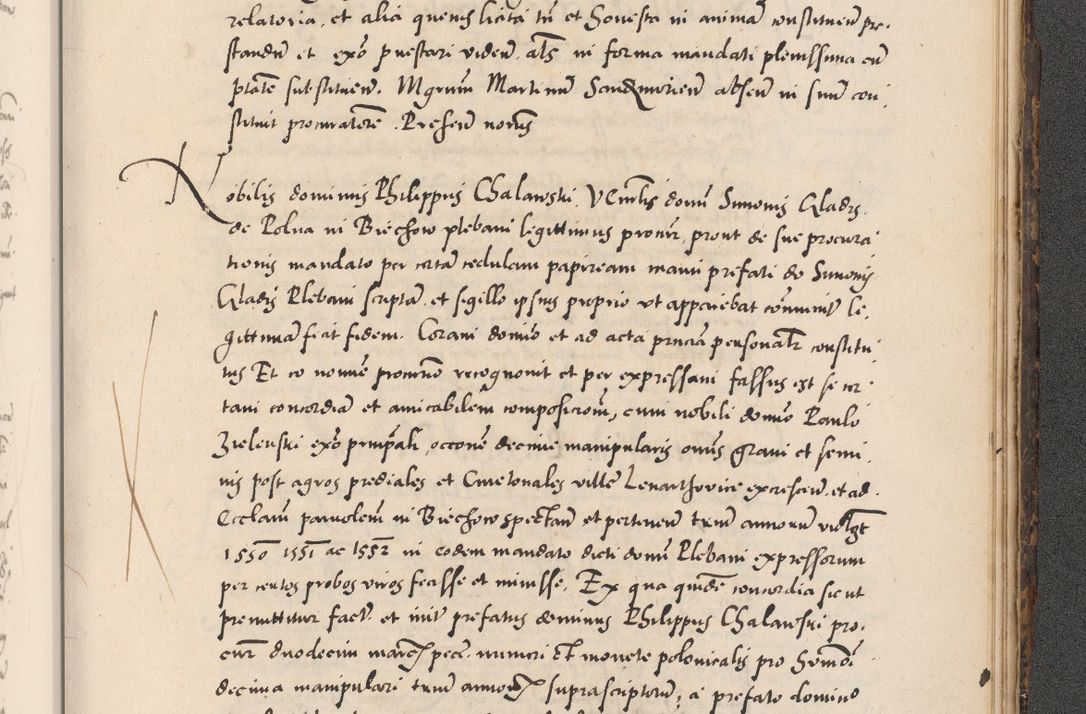 relatoria, et alia quevis licita tn et honesta in animam constituen pre,
standum et exñ prestari viden als in forma mandati plenissima cum
ptate substituen. Mgrum Martinum Sandmirien absen in suum con,
stituit procuratorem. Presen notariis
Nobilis dominus Philippus Chalawski, Venlis domi Simonis Gladis
de Polna in Biechow plebani legittimus procur, prout de sue procura
tionis mandato per certam cedulam papiream manu prefati do Simonis
Gladis Plebani scriptam, et sigillo ipsius proprio ut apparebat communit le,
gittimam fecit fidem. Coram domino et ad acta pncia personalr constitu
tus Et eo nomine procurio recognovit et per expressum fassus est se cer
tam concordiam et amicabilem compositionem, cum nobili domino Paulo
Zielenski exñ principali, occone decime manipularis omnis grani et semi,
nis post agros prediales et Cmetonales ville Lenarthovice excrescen, et ad
Ecclam parrolem in Biechow spectan et pertinen trium annorum vidlgt
1550 1551 ac 1552 in eodem mandato dicti domi Plebani expressorum
per certos probos viros fecisse et iniisse, Ex qua quidem concordia sic ut
premittitur fact et init prefatus dominus Philippus Chalawski pro,
cur duodecim marcas pecc. numeri et monete polonicalis pro himoi
decima manipulari trium annorum suprascriptorum, a prefato domino